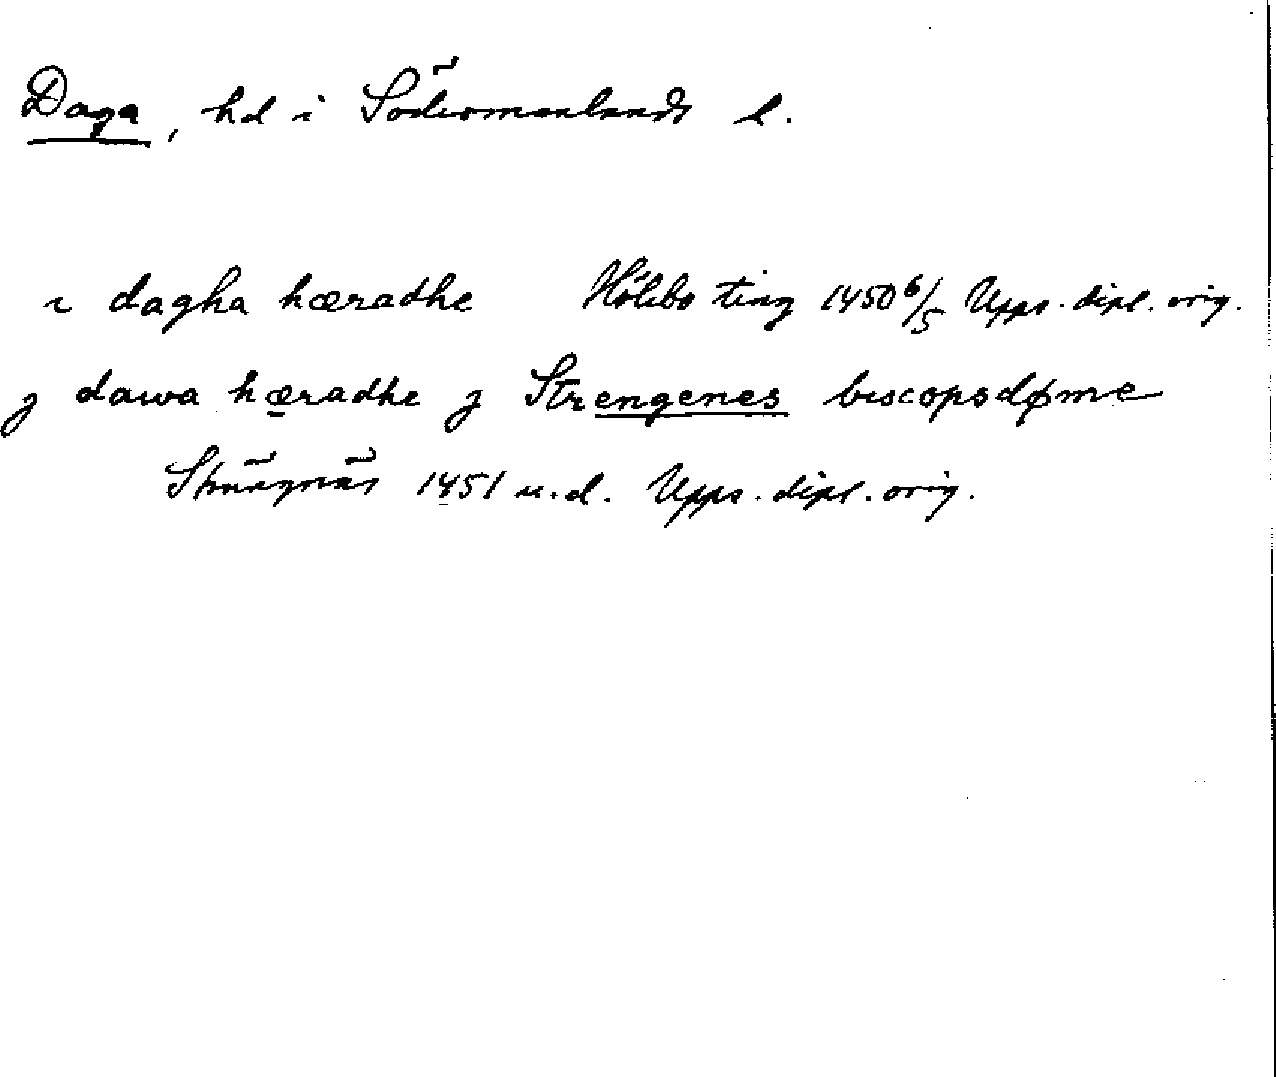 Daga, hd i Södermanlands l.
i dagha hæradhe Hölebo ting 1450 6/5 Upps. dipl. orig.
j dawa hæradhe j Strengenes biscopsdøme
Strängnäs 1451 u.d. Upps. dipl. orig.